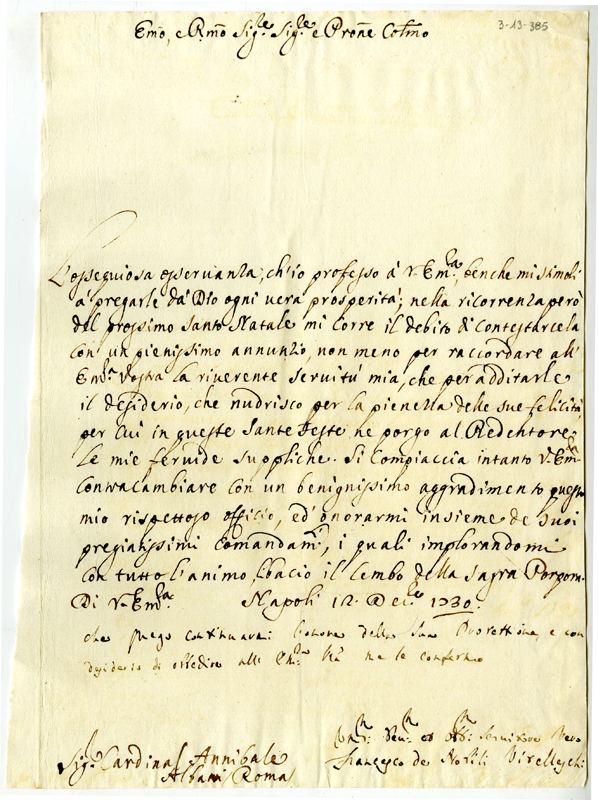 3-13-385
Emo, e Rmo Sig.re Sig.re e Prone Colmo
L'ossequiosa osservanza, ch'io professo à V. Em.za, benche mi stimoli
a' pregarle da' Dio ogni vera prosperità; nella ricorrenza però
del prossimo Santo Natale mi corre il debito di contestarcela
con' un pienissimo annunzio, non meno per raccordare all'
Em.za Vostra la riverente servitù mia, che per additarle
il desiderio, che nudrisco per la pienezza delle sue felicità
per cui in queste Sante Feste ne porgo al Redentore
le mie fervide suppliche. Si compiaccia intanto V. Em.za
contracambiare con un benignissimo aggradimento questo
mio rispettoso officio, ed' onorarmi insieme de' suoi
pregiatissimi comandam.ti, i quali implorandomi
con tutto l'animo, bacio il lembo della Sagra Porpora
Di V. Em.za Napoli 12 Dec.e 1730.
che prego continuarmi l'onore della sua Protettione, e con
desiderio di obbedire all' me le confermo
Sig.r Cardinal Annibale
Albani Roma
Servitore Vero
Francesco de Nobili Vitelleschi